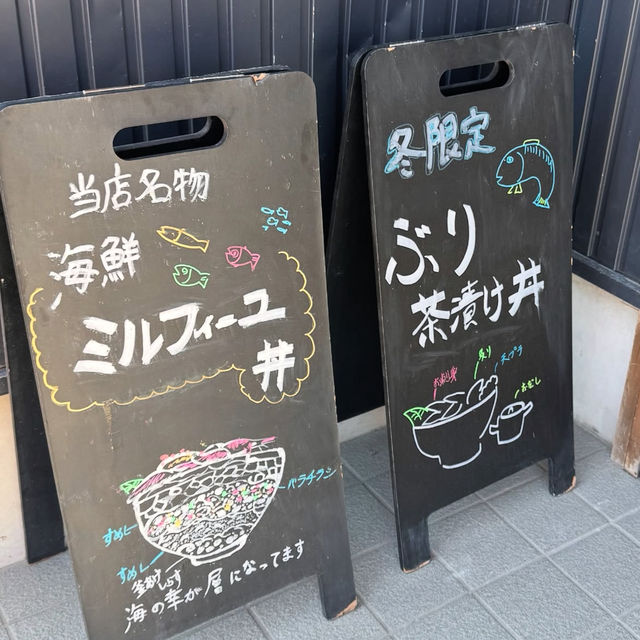 当店名物
海鮮
ミルフィーユ
丼
バラチラシ
すめし
すめし
海の幸が層になってます
冬限定
ぶり
茶漬け丼
お刺身
炙り
天プラ
おだし